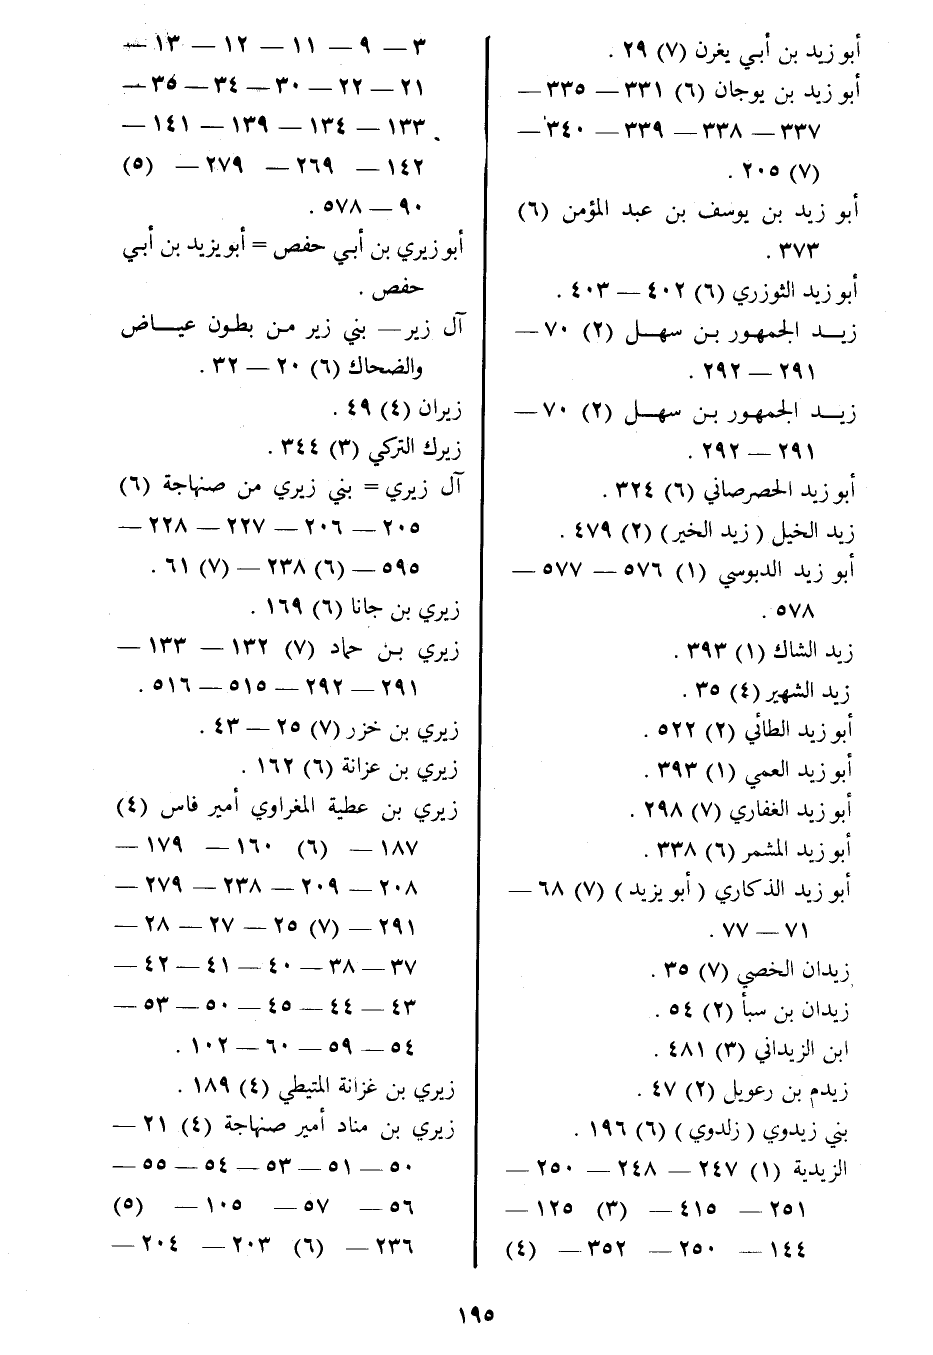 أبو زيد بن أبي يغرن (٧) ٢٩ .
أبو زيد بن يوجان (٦) ٣٣١ — ٣٣٥ —
٣٣٧ — ٣٣٨ — ٣٣٩ — ٣٤٠ —
(٧) ٢٠٥ .
أبو زيد بن يوسف بن عبد المؤمن (٦)
٣٧٣ .
أبو زيد التوزري (٦) ٤٠٢ — ٤٠٣ .
زيـد الجمهور بن سهل (٢) ٧٠ —
٢٩١ — ٢٩٢ .
زيـد الجمهور بن سهل (٢) ٧٠ —
٢٩١ — ٢٩٢ .
أبو زيد الحصرصاني (٦) ٣٢٤ .
زيد الخيل ( زيد الخير ) (٢) ٤٧٩ .
أبو زيد الدبوسي (١) ٥٧٦ — ٥٧٧ —
٥٧٨ .
زيد الشاك (١) ٣٩٣ .
زيد الشهير (٤) ٣٥ .
أبو زيد الطائي (٢) ٥٢٢ .
أبو زيد العمي (١) ٣٩٣ .
أبو زيد الغفاري (٧) ٢٩٨ .
أبو زيد المشمر (٦) ٣٣٨ .
أبو زيد الذكاري ( أبو يزيد ) (٧) ٦٨ —
٧١ — ٧٧ .
زيدان الخصي (٧) ٣٥ .
زيدان بن سبأ (٢) ٥٤ .
ابن الزيداني (٣) ٤٨١ .
زيدم بن رعويل (٢) ٤٧ .
بني زيدوي ( زلدوي ) (٦) ١٩٦ .
الزيدية (١) ٢٤٧ — ٢٤٨ — ٢٥٠ —
٢٥١ — ٤١٥ — (٣) ١٢٥ —
١٤٤ — ٢٥٠ — ٣٥٢ — (٤)
٣ — ٩ — ١١ — ١٢ — ١٣ —
٢١ — ٢٢ — ٣٠ — ٣٤ — ٣٥ —
١٣٣ — ١٣٤ — ١٣٩ — ١٤١ —
١٤٢ — ٢٦٩ — ٢٧٩ — (٥)
٩٠ — ٥٧٨ .
أبو زيري بن أبي حفص = أبو يزيد بن أبي
حفص .
آل زير — بني زير من بطون عياض
والضحاك (٦) ٢٠ — ٣٢ .
زيران (٤) ٤٩ .
زيرك التركي (٣) ٣٤٤ .
آل زيري = بني زيري من صنهاجة (٦)
٢٠٥ — ٢٠٦ — ٢٢٧ — ٢٢٨ —
٥٩٥ — (٦) ٢٣٨ — (٧) ٦١ .
زيري بن جانا (٦) ١٦٩ .
زيري بن حماد (٧) ١٣٢ — ١٣٣ —
٢٩١ — ٢٩٢ — ٥١٥ — ٥١٦ .
زيري بن خزر (٧) ٢٥ — ٤٣ .
زيري بن عزانة (٦) ١٦٢ .
زيري بن عطية المغراوي أمير فاس (٤)
١٨٧ — (٦) ١٦٠ — ١٧٩ —
٢٠٨ — ٢٠٩ — ٢٣٨ — ٢٧٩ —
٢٩١ — (٧) ٢٥ — ٢٧ — ٢٨ —
٣٧ — ٣٨ — ٤٠ — ٤١ — ٤٢ —
٤٣ — ٤٤ — ٤٥ — ٥٠ — ٥٣ —
٥٤ — ٥٩ — ٦٠ — ١٠٢ .
زيري بن غزانة المتيطي (٤) ١٨٩ .
زيري بن مناد أمير صنهاجة (٤) ٢١ —
٥٠ — ٥١ — ٥٣ — ٥٤ — ٥٥ —
٥٦ — ٥٧ — ١٠٥ — (٥)
٢٣٦ — (٦) ٢٠٣ — ٢٠٤ —
١٩٥